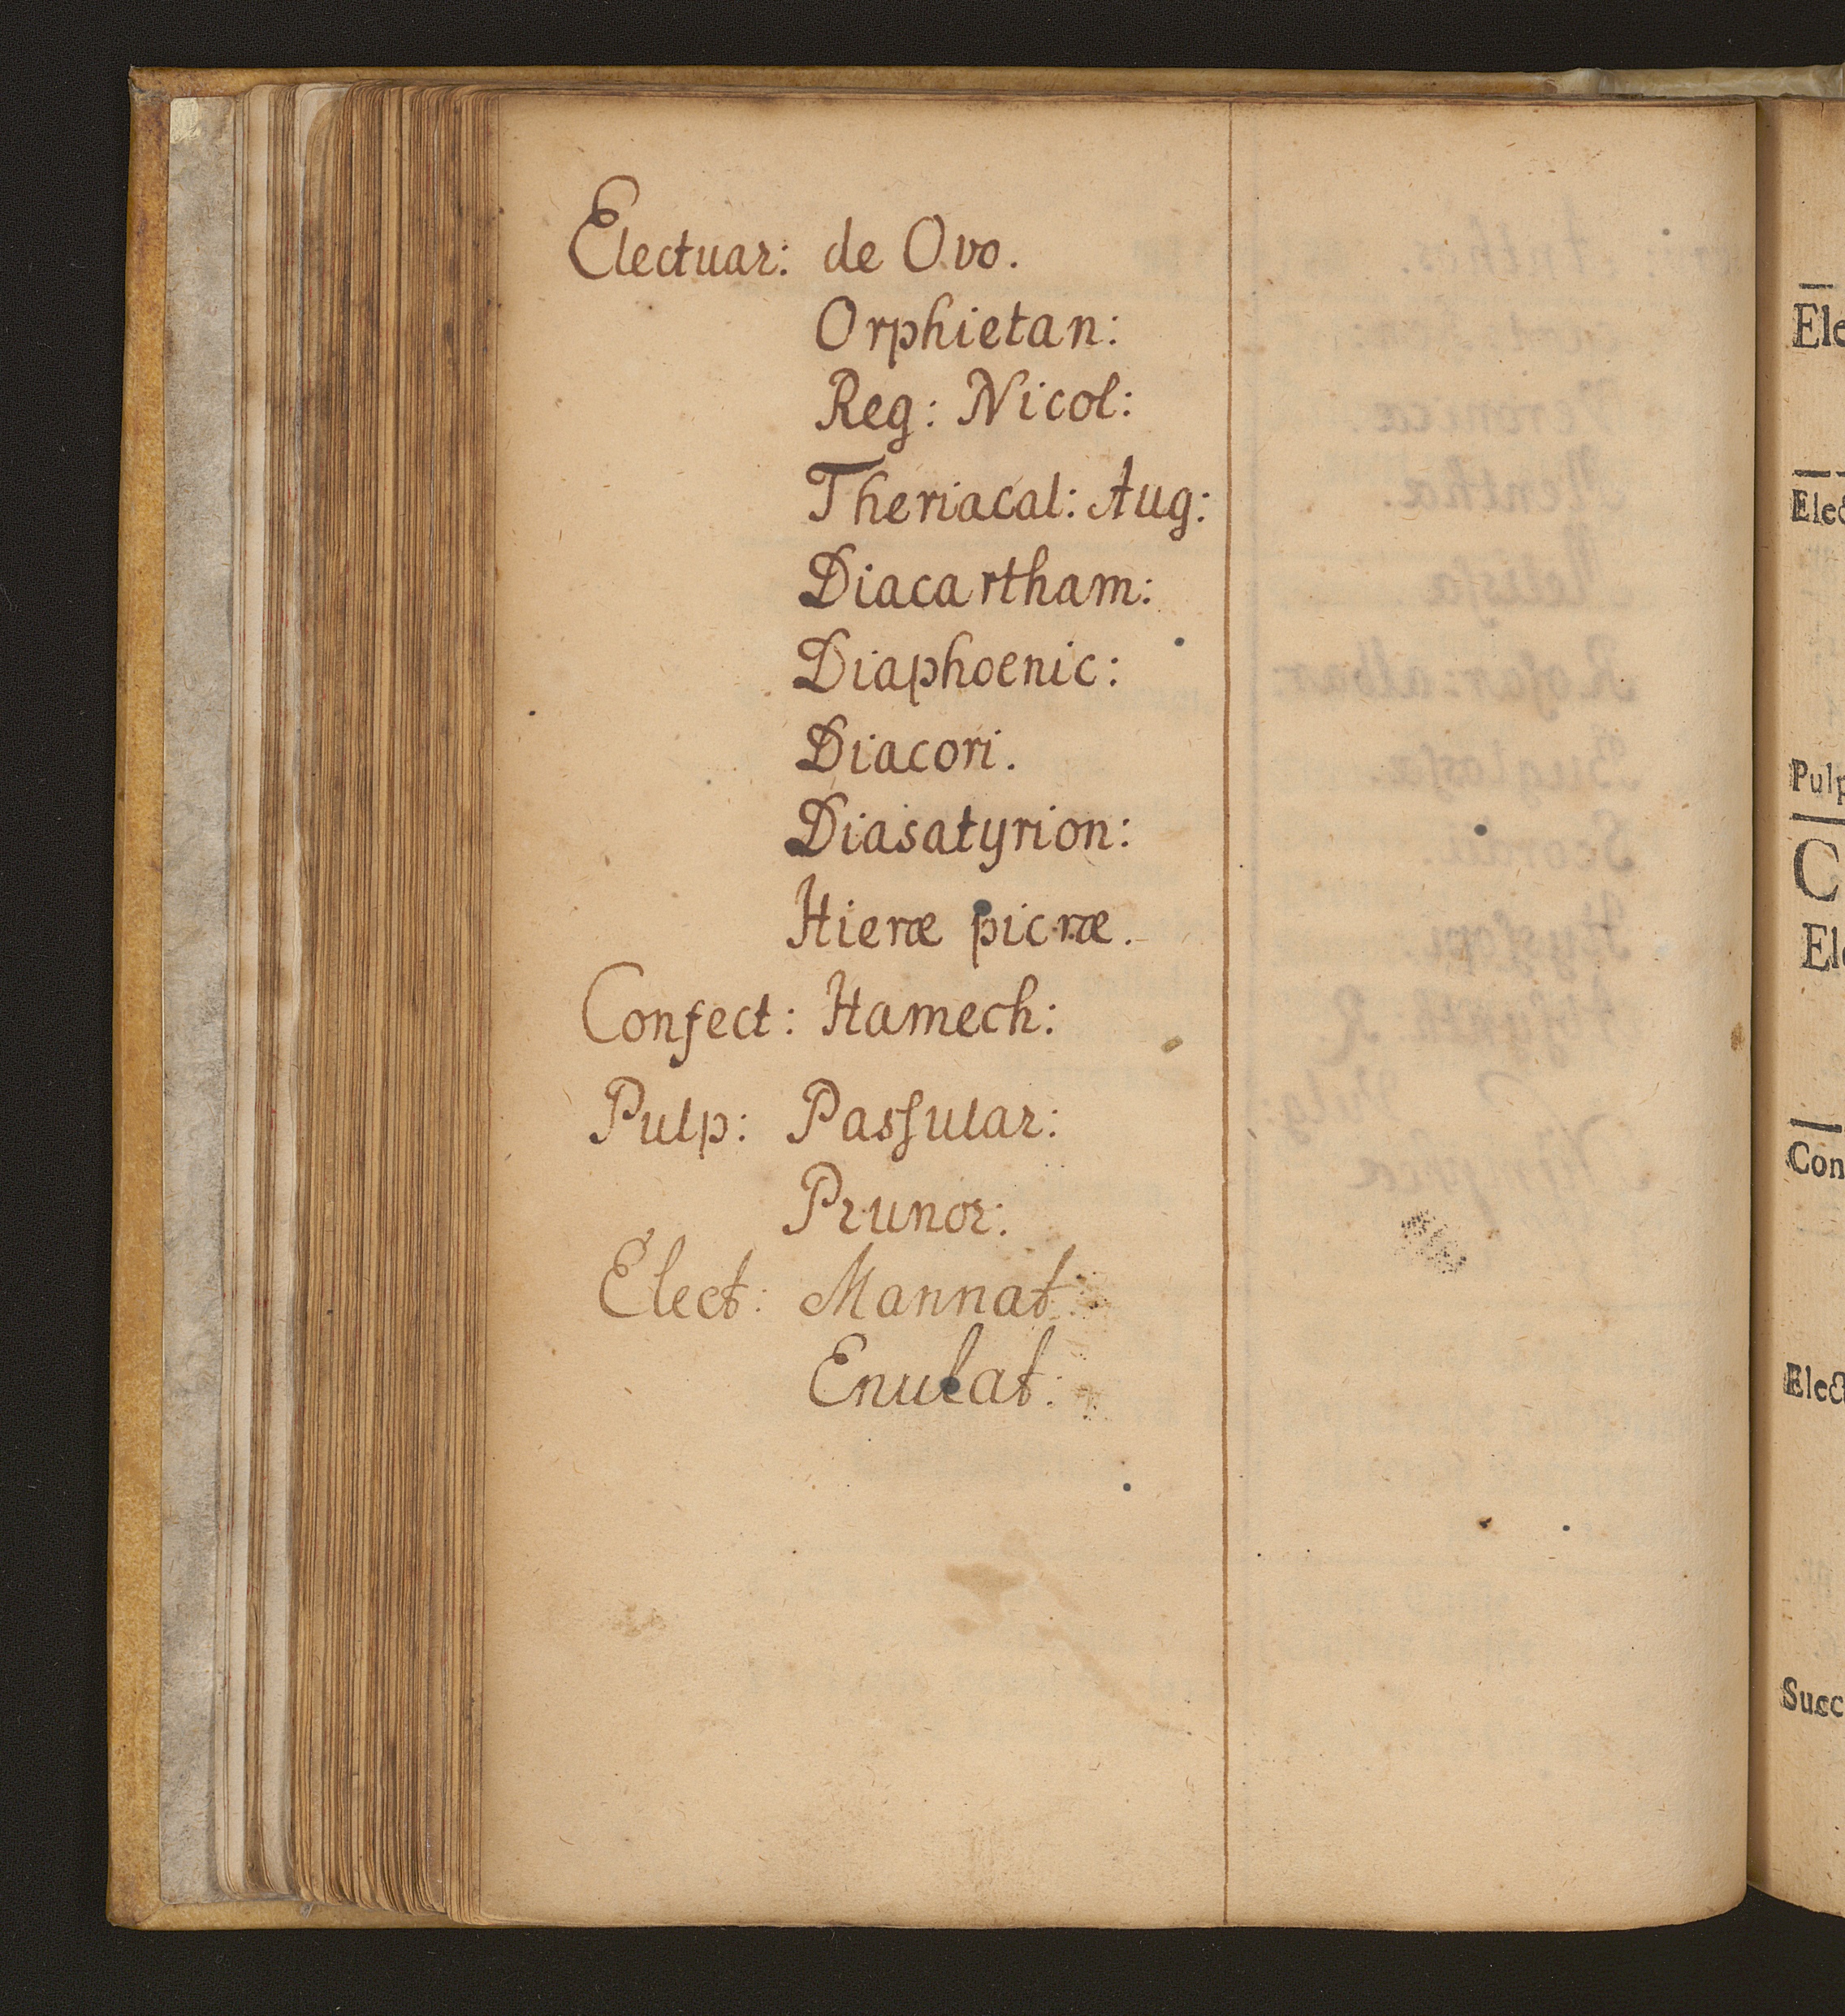 Electuar: de Ovo.
Orphietan:
Reg: Nicol:
Theriacal: Aug:
Diacartham:
Diaphoenic:
Diacori.
Diasatyrion:
Hieræ picræ.
Confect: Hamech:
Pulp: Pasſular:
Prunor:
Elect: Mannat:
Enulat:
Ele
Elec
Pulp
C
Ele
Con
Elect
Succ